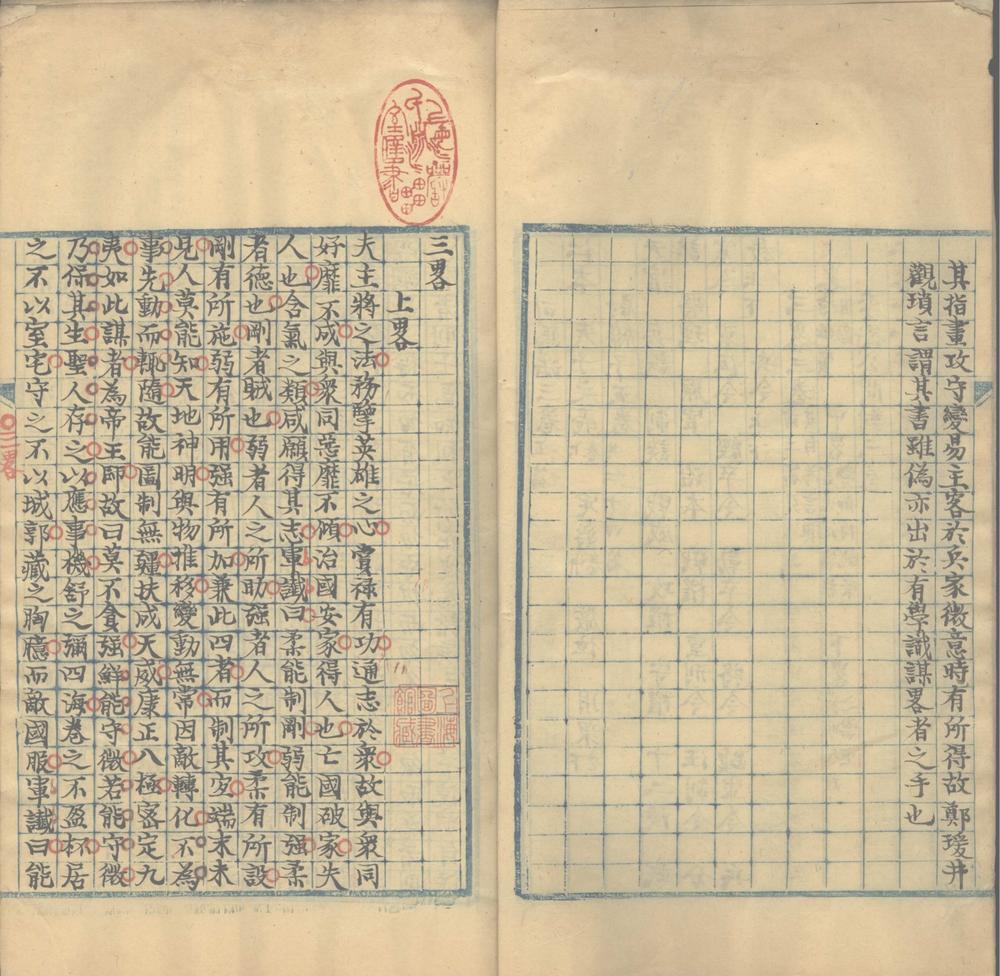 其指畫攻守變易主客於兵家微意時有所得故鄭瑗井
觀瑣言謂其書雖偽亦出於有學識謀畧者之手也
三畧
上畧
夫主將之法務擥英雄之心賞祿有功通志於衆故與衆同
好靡不成與衆同惡靡不傾治國安家得人也亡國破家失
人也含氣之類咸願得其志軍讖曰柔能制剛弱能制强柔
者德也剛者賊也弱者人之所助强者人之所攻柔有所設
剛有所施弱有所用强有所加兼此四者而制其宜端末未
見人莫能知天地神明與物推移變動無常因敵轉化不為
事先動而輒隨故能圖制無疆扶成天威康正八極密定九
夷如此謀者為帝王師故曰莫不貪强鮮能守微若能守微
乃保其生聖人存之以應事機舒之彌四海卷之不盈杯居
之不以室宅守之不以城郭藏之胸臆而敵國服軍讖曰能
三畧
上海圖書館藏